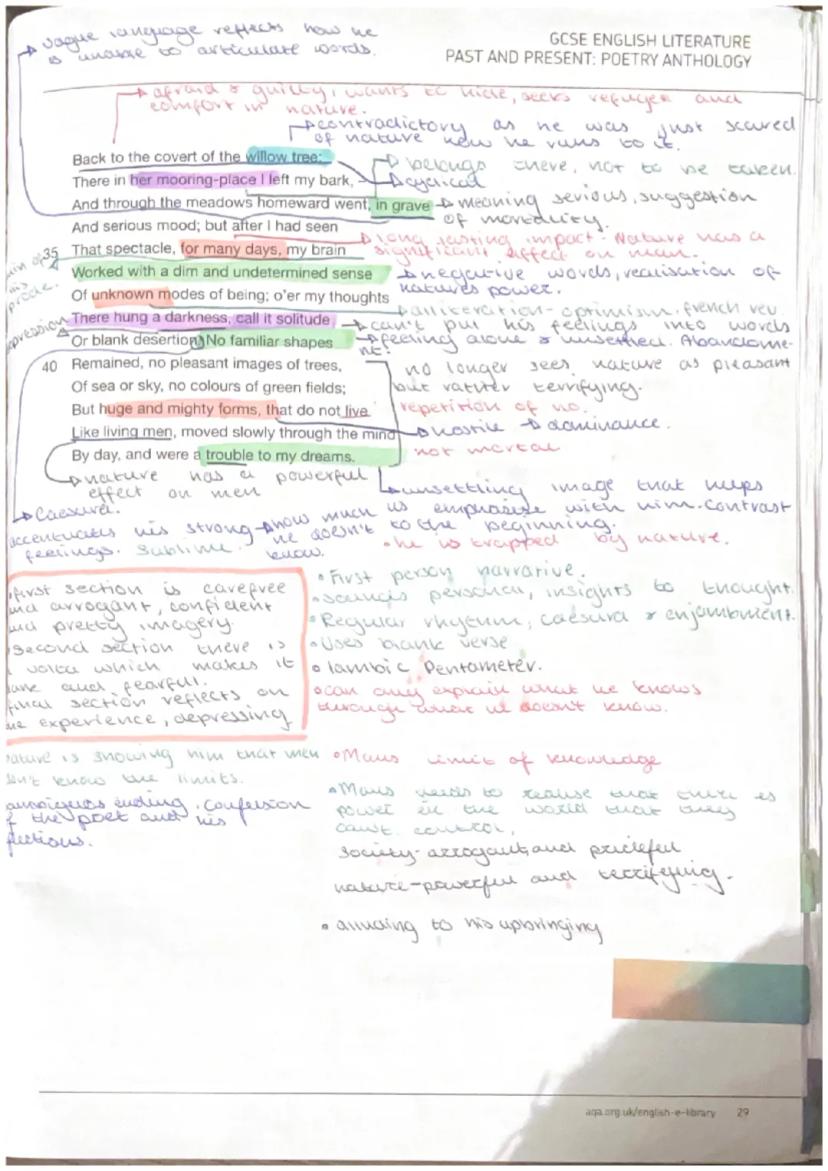 vague language reflects how he
is unable to articulate words.
GCSE ENGLISH LITERATURE
PAST AND PRESENT: POETRY ANTHOLOGY
afraid & guilty, wants to hide, seeks refuge and
comfort in nature.
contradictory as he was just scared
of nature now he runs to it.
Back to the covert of the willow tree;
belongs there, not to be taken.
There in her mooring-place I left my bark, –
cyclical
And through the meadows homeward went, in grave
meaning serious, suggestion
of mortality.
And serious mood; but after I had seen
35 That spectacle, for many days, my brain
long lasting impact - Nature has a
significant effect on man.
Worked with a dim and undetermined sense
negative words, realisation of
natures power.
Of unknown modes of being; o'er my thoughts
alliteration - optimism, french rev.
There hung a darkness, call it solitude
can't put his feelings into words
Or blank desertion. No familiar shapes
feeling alone & unsettled. Abandonme-
nt!
40 Remained, no pleasant images of trees,
no longer sees nature as pleasant
but rather terrifying.
Of sea or sky, no colours of green fields;
But huge and mighty forms, that do not live
repetition of no.
Like living men, moved slowly through the mind
hostile → dominance.
By day, and were a trouble to my dreams.
not mortal
nature has a powerful
effect on men
unsettling image that helps
us emphasise with him. Contrast
to the beginning.
Caesura.
accentuates his strong
feelings. Sublime.
how much
he doesn't
know.
• he is trapped by nature.
first section is carefree
and arrogant, confident
and pretty imagery.
second section there is
volta which makes it
and fearful.
final section reflects on
experience, depressing
• First person narrative.
• sounds personal, insights to thought.
• Regular rhythm, caesura & enjambment.
• Uses blank verse
• Iambic Pentameter.
• can only explain what he knows
through what he doesn't know.
nature is showing him that men
don't know the limits.
ambiguos ending, confusion
of the poet and his
• Mans limit of knowledge
• Mans needs to realise that there is
power in the world that they
cant control,
society-arrogant and prideful
nature-powerful and terrifying.
• alluding to his upbringing
aqa.org.uk/english-e-library 29